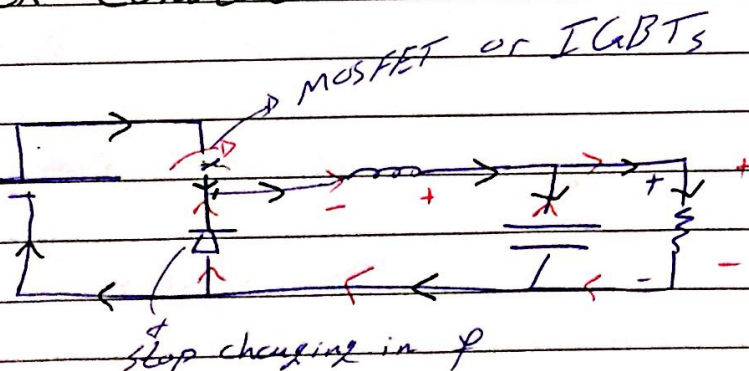 MOSFET or IGBTs
- +
+ +
- -
stop changing in φ